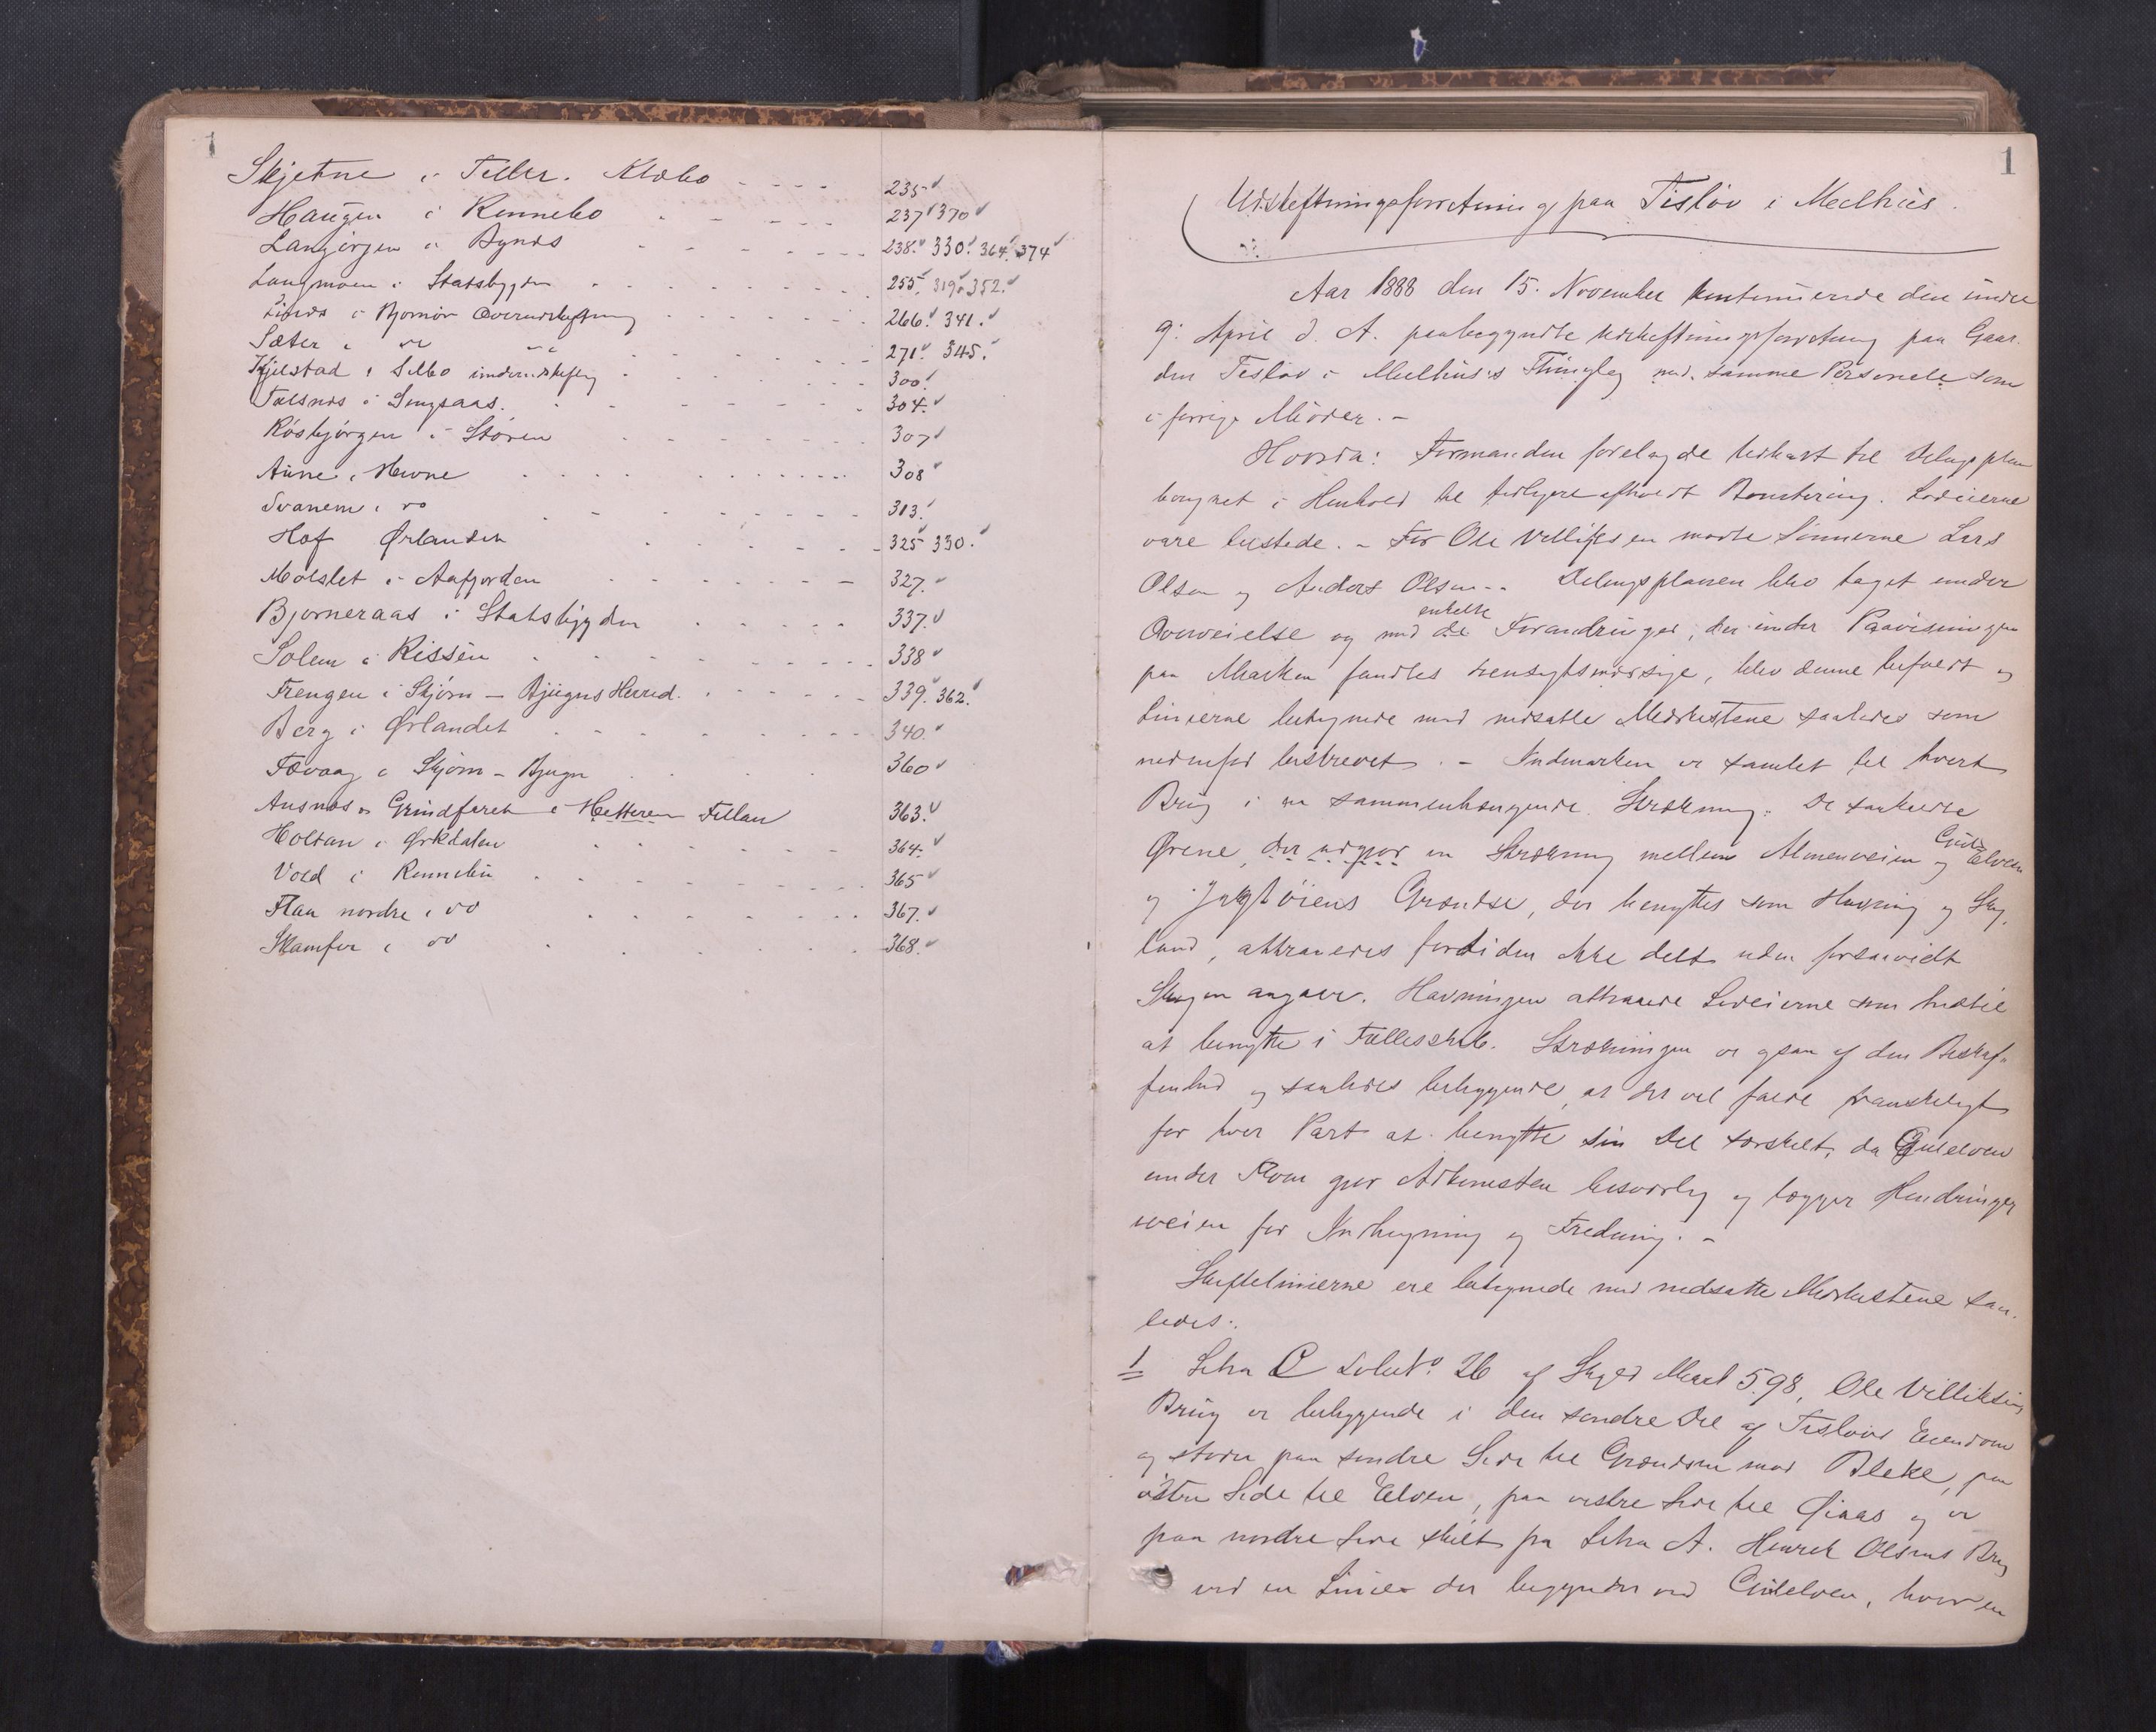 1
Skjetne i Tiller. Klæbo - - - - 235
Haugen i Rennebo - - - - 237 370
Langørgen i Bynes - - - - 238. 330. 364. 374
Langmoen i Statsbygden - - - - 255. 319. 352.
i Bjørnør Overudskiftning - - - - 266. 341.
Sæter i do do - - - - 271. 345.
Kjelstad i Selbo underudskiftng - - - - 300.
Folsnes i Singsaas. - - - - 304.
Rósbjørgen i Støren - - - - 307
Aune i Hevne - - - - 308
Svanem i do - - - - 313.
Hof Ørlandet - - - - 325 330.
Mælslet i Aafjorden - - - - 327.
Bjørneraas i Statsbygden - - - - 337.
Solem i Rissen - - - - 338
Trengen i Skjørn - Bjugns Herred. - - - - 339. 362.
Berg i Ørlandet - - - - 340.
Fævaag i Skjørn - Bjugn - - - - 360
Ausnæs og Grindfaret i Hitteren Fillan 363.
Holtan i Ørkdalen - - - - 364.
Vold i Rennebu - - - - 365
Flaa nordre i do - - - - 367.
Skamfer i do - - - - 368.
1
Udskiftningsforretning paa Tisløv i Meelhus.
Aar 1888 den 15. November kontinuerede den under
9. April d. A. paabegyndte Udskiftningsforretning paa Gaar-
den Tisløv i Meelhus's Thinglag med samme Personele som
i forrige Møder. -
Hvorda: Formanden forelagde Udkast til Delingsplan
beregnet i Henhold til tidligere afholdt Bonitering. Lodeierne
vare tilstede. - For Ole Villiksen mødte Sønnerne Lars
Olsen og Anders Olsen. - Delingsplanen blev taget under
Overveielse og med de enkelte Forandringer, der under Paavisningen
paa Marken fandtes hensigtsmæssige, blev denne befaret og
Linierne betegnede med nedsatte Merkestene saaledes som
nedenfor beskrevet. - Indmarken er samlet til hvert
Brug i en sammenhængende Strækning. De saakaldte
Ørene, der udgjør en Strækning mellem Almenveien og Gul Elven
og Jagtøiens Grændse, der benyttes som Havning og Skog-
land, attraaedes fortiden ikke delt uden forsaavidt
Skogen angaar. Havningen attraaede Lodeierne som hidtil
at benytte i Fællesskab. Strækningen er ogsaa af den Beskaf-
fenhed og saaledes beliggende, at det vil falde vanskeligt
for hver Part at benytte sin Del særskilt, da Gulelven
under Flom gjør Adkomsten besværlig og lægger Hindringer
iveien for Indhegning og Fredning. -
Skiftelinierne ere betegnede med nedsatte Merkestene saa-
ledes:
1 Litra C Løbe No 26 af Skyld Mark 5.98, Ole Villiksens
Brug er beliggende i den søndre Del af Tisløvs Eiendom
og støder paa søndre Side til Grændsen mod Bleke, paa
østre Side til Elven, paa vestre Side til Øiaas og er
paa nordre Side skilt fra Litra A. Henrik Olsens Brug
ved en Linie der begynder ved Gulelven, hvor en